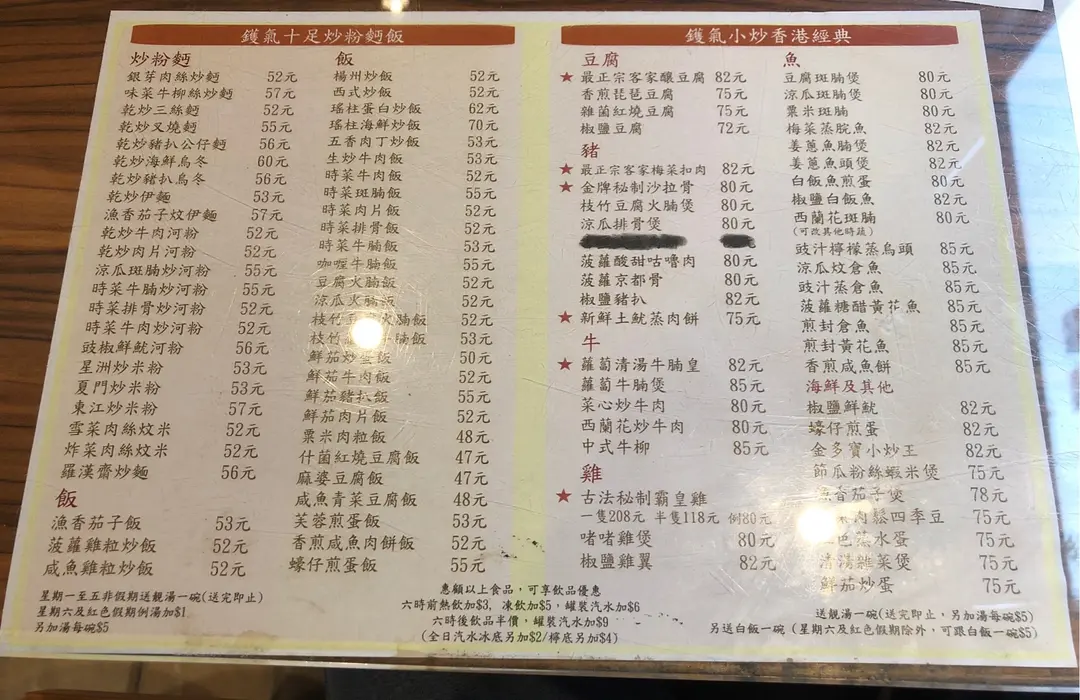 鑊氣十足炒粉麵飯
炒粉麵
銀芽肉絲炒麵 52元
味菜牛柳絲炒麵 57元
乾炒三絲麵 52元
乾炒叉燒麵 55元
乾炒豬扒公仔麵 56元
乾炒海鮮烏冬 60元
乾炒豬扒烏冬 56元
乾炒伊麵 53元
漁香茄子炆伊麵 57元
乾炒牛肉河粉 52元
乾炒肉片河粉 52元
涼瓜斑腩炒河粉 55元
時菜牛腩炒河粉 55元
時菜排骨炒河粉 52元
時菜牛肉炒河粉 52元
豉椒鮮魷河粉 56元
星洲炒米粉 53元
夏門炒米粉 53元
東江炒米粉 57元
雪菜肉絲炆米 52元
炸菜肉絲炆米 52元
羅漢齋炒麵 56元
飯
漁香茄子飯 53元
菠蘿雞粒炒飯 52元
咸魚雞粒炒飯 52元
飯
楊州炒飯 52元
西式炒飯 52元
瑤柱蛋白炒飯 62元
瑤柱海鮮炒飯 70元
五香肉丁炒飯 53元
生炒牛肉飯 53元
時菜牛肉飯 52元
時菜斑腩飯 55元
時菜肉片飯 52元
時菜排骨飯 52元
時菜牛腩飯 53元
咖喱牛腩飯 55元
豆腐火腩飯 52元
涼瓜火腩飯 52元
枝竹 火腩飯 52元
枝竹 腩飯 53元
鮮茄炒蛋飯 50元
鮮茄牛肉飯 52元
鮮茄豬扒飯 55元
鮮茄肉片飯 52元
粟米肉粒飯 48元
什菌紅燒豆腐飯 47元
麻婆豆腐飯 47元
咸魚青菜豆腐飯 48元
芙蓉煎蛋飯 53元
香煎咸魚肉餅飯 52元
蠔仔煎蛋飯 55元
星期一至五非假期送靚湯一碗(送完即止)
星期六及紅色假期例湯加$1
另加湯每碗$5
惠顧以上食品，可享飲品優惠
六時前熱飲加$3，凍飲加$5，罐裝汽水加$6
六時後飲品半價，罐裝汽水加$9
(全日汽水冰底另加$2/檸底另加$4)
鑊氣小炒香港經典
豆腐
★ 最正宗客家釀豆腐 82元
香煎琵琶豆腐 75元
雜菌紅燒豆腐 75元
椒鹽豆腐 72元
豬
★ 最正宗客家梅菜扣肉 82元
★ 金牌秘制沙拉骨 80元
枝竹豆腐火腩煲 80元
涼瓜排骨煲 80元
菠蘿酸甜咕嚕肉 80元
菠蘿京都骨 80元
椒鹽豬扒 82元
★ 新鮮土魷蒸肉餅 75元
牛
★ 蘿蔔清湯牛腩皇 82元
蘿蔔牛腩煲 85元
菜心炒牛肉 80元
西蘭花炒牛肉 80元
中式牛柳 85元
雞
★ 古法秘制霸皇雞
一隻208元 半隻118元 例80元
啫啫雞煲 80元
椒鹽雞翼 82元
魚
豆腐斑腩煲 80元
涼瓜斑腩煲 80元
粟米斑腩 80元
梅菜蒸脘魚 82元
姜蔥魚腩煲 82元
姜蔥魚頭煲 82元
白飯魚煎蛋 80元
椒鹽白飯魚 82元
西蘭花斑腩 80元
(可改其他時蔬)
豉汁檸檬蒸烏頭 85元
涼瓜炆倉魚 85元
豉汁蒸倉魚 85元
菠蘿糖醋黃花魚 85元
煎封倉魚 85元
煎封黃花魚 85元
香煎咸魚餅 85元
海鮮及其他
椒鹽鮮魷 82元
蠔仔煎蛋 82元
金多寶小炒王 82元
節瓜粉絲蝦米煲 75元
香茄子煲 78元
肉鬆四季豆 75元
色蒸水蛋 75元
清湯雜菜煲 75元
鮮茄炒蛋 75元
送靚湯一碗(送完即止，另加湯每碗$5)
另送白飯一碗 (星期六及紅色假期除外，可跟白飯一碗$5)